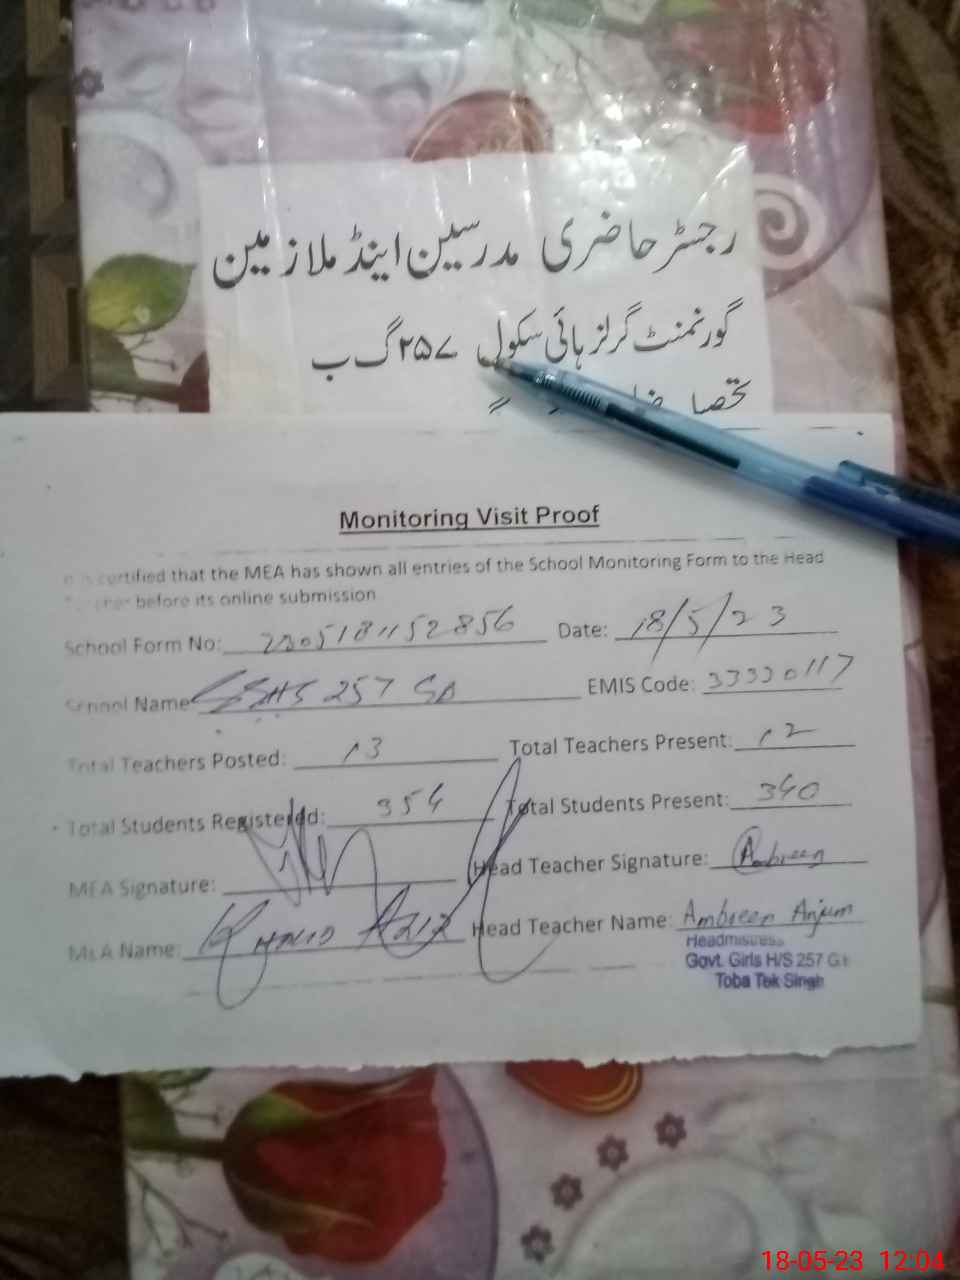 رجسٹر حاضری مدرسین اینڈ ملازمین
گورنمنٹ گرلز ہائی سکول ۲۵۷ گ ب
Monitoring Visit Proof
It is certified that the MEA has shown all entries of the School Monitoring Form to the Head
Teacher before its online submission
School Form No: 2305181152856 Date: 18/5/23
School Name GGHS 257 GB EMIS Code: 33330117
Total Teachers Posted: 13 Total Teachers Present: 12
Total Students Registered: 354 Total Students Present: 340
MEA Signature: Head Teacher Signature: Ambreen
MEA Name: Khalid Aziz Head Teacher Name: Ambreen Anjum
Headmistress
Govt. Girls H/S 257 G
Toba Tek Singh
18-05-23 12:04